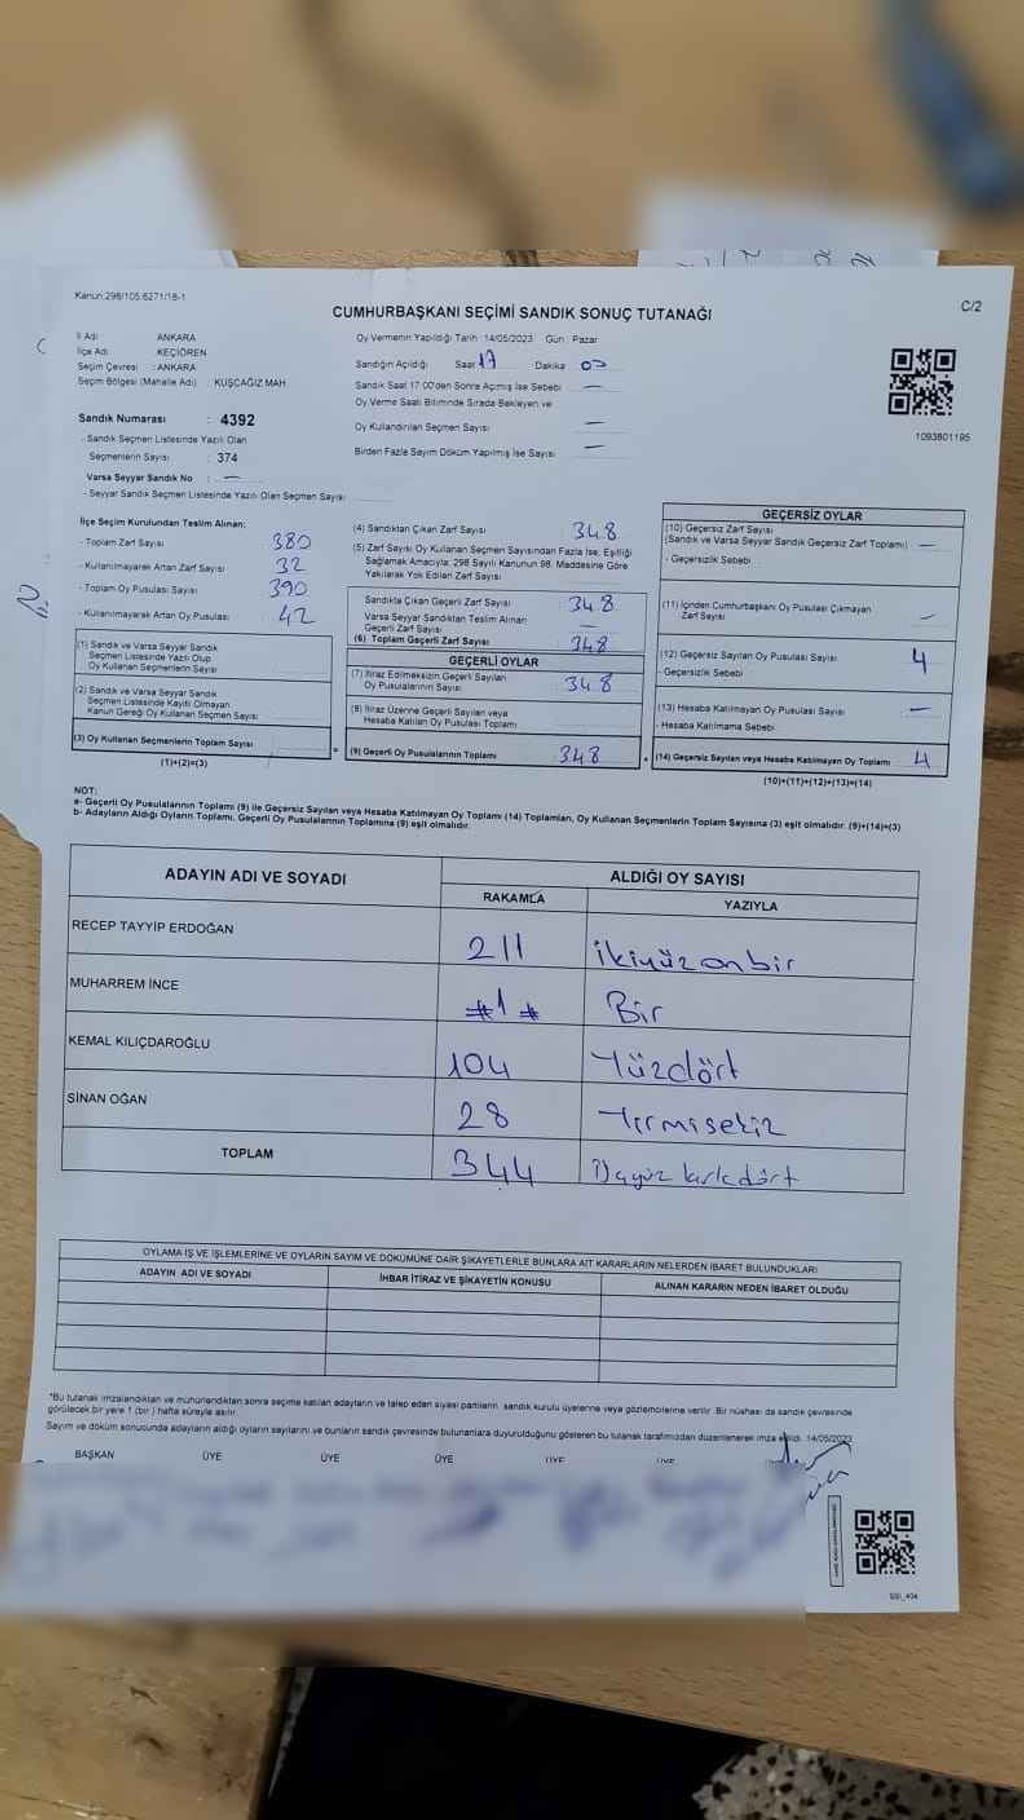 Kanun:298/105.6271/18-1
C/2
CUMHURBAŞKANI SEÇİMİ SANDIK SONUÇ TUTANAĞI
İl Adı ANKARA
İlçe Adı KEÇİÖREN
Seçim Çevresi : ANKARA
Seçim Bölgesi (Mahalle Adı) KUŞCAĞIZ MAH
Sandık Numarası : 4392
- Sandık Seçmen Listesinde Yazılı Olan
Seçmenlerin Sayısı : 374
Varsa Seyyar Sandık No : —
- Seyyar Sandık Seçmen Listesinde Yazılı Olan Seçmen Sayısı
Oy Vermenin Yapıldığı Tarih 14/05/2023 Gün Pazar
Sandığın Açıldığı Saat 17 Dakika
Sandık Saat 17:00'den Sonra Açılmış İse Sebebi —
Oy Verme Saati Bitiminde Sırada Bekleyen ve
Oy Kullandırılan Seçmen Sayısı —
Birden Fazla Sayım Döküm Yapılmış İse Sayısı —
1093801195
İlçe Seçim Kurulundan Teslim Alınan:
- Toplam Zarf Sayısı 380
- Kullanılmayarak Artan Zarf Sayısı 32
- Toplam Oy Pusulası Sayısı 390
- Kullanılmayarak Artan Oy Pusulası 42
(1) Sandık ve Varsa Seyyar Sandık
Seçmen Listesinde Yazılı Olup
Oy Kullanan Seçmenlerin Sayısı
(2) Sandık ve Varsa Seyyar Sandık
Seçmen Listesinde Kayıtlı Olmayan
Kanun Gereği Oy Kullanan Seçmen Sayısı
(3) Oy Kullanan Seçmenlerin Toplam Sayısı
(1)+(2)=(3)
(4) Sandıktan Çıkan Zarf Sayısı 348
(5) Zarf Sayısı Oy Kullanan Seçmen Sayısından Fazla İse, Eşitliği
Sağlamak Amacıyla, 298 Sayılı Kanunun 98. Maddesine Göre
Yakılarak Yok Edilen Zarf Sayısı
Sandıkta Çıkan Geçerli Zarf Sayısı 348
Varsa Seyyar Sandıktan Teslim Alınan
Geçerli Zarf Sayısı —
(6) Toplam Geçerli Zarf Sayısı 348
GEÇERLİ OYLAR
(7) İtiraz Edilmeksizin Geçerli Sayılan
Oy Pusulalarının Sayısı 348
(8) İtiraz Üzerine Geçerli Sayılan veya
Hesaba Katılan Oy Pusulası Toplamı
= (9) Geçerli Oy Pusulalarının Toplamı 348
GEÇERSİZ OYLAR
(10) Geçersiz Zarf Sayısı
(Sandık ve Varsa Seyyar Sandık Geçersiz Zarf Toplamı) —
- Geçersizlik Sebebi
(11) İçinden Cumhurbaşkanı Oy Pusulası Çıkmayan
Zarf Sayısı —
(12) Geçersiz Sayılan Oy Pusulası Sayısı 4
- Geçersizlik Sebebi
(13) Hesaba Katılmayan Oy Pusulası Sayısı —
- Hesaba Katılmama Sebebi
+ (14) Geçersiz Sayılan veya Hesaba Katılmayan Oy Toplamı 4
(10)+(11)+(12)+(13)=(14)
NOT:
a- Geçerli Oy Pusulalarının Toplamı (9) ile Geçersiz Sayılan veya Hesaba Katılmayan Oy Toplamı (14) Toplamları, Oy Kullanan Seçmenlerin Toplam Sayısına (3) eşit olmalıdır. (9)+(14)=(3)
b- Adayların Aldığı Oyların Toplamı, Geçerli Oy Pusulalarının Toplamına (9) eşit olmalıdır.
ADAYIN ADI VE SOYADI ALDIĞI OY SAYISI
RAKAMLA YAZIYLA
RECEP TAYYİP ERDOĞAN 211 ikiyüz onbir
MUHARREM İNCE #1# Bir
KEMAL KILIÇDAROĞLU 104 Yüzdört
SİNAN OĞAN 28 Yirmisekiz
TOPLAM 344 kırkdört
OYLAMA İŞ VE İŞLEMLERİNE VE OYLARIN SAYIM VE DÖKÜMÜNE DAİR ŞİKAYETLERLE BUNLARA AİT KARARLARIN NELERDEN İBARET BULUNDUKLARI
ADAYIN ADI VE SOYADI İHBAR İTİRAZ VE ŞİKAYETİN KONUSU ALINAN KARARIN NEDEN İBARET OLDUĞU
*Bu tutanak imzalandıktan ve mühürlendikten sonra seçime katılan adayların ve talep eden siyasi partilerin, sandık kurulu üyelerine veya gözlemcilerine verilir. Bir nüshası da sandık çevresinde
görülecek bir yere 1 (bir) hafta süreyle asılır.
Sayım ve döküm sonucunda adayların aldığı oyların sayılarını ve bunların sandık çevresinde bulunanlara duyurulduğunu gösteren bu tutanak tarafımızdan düzenlenerek imza edildi. 14/05/2023
BAŞKAN ÜYE ÜYE ÜYE ÜYE ÜYE